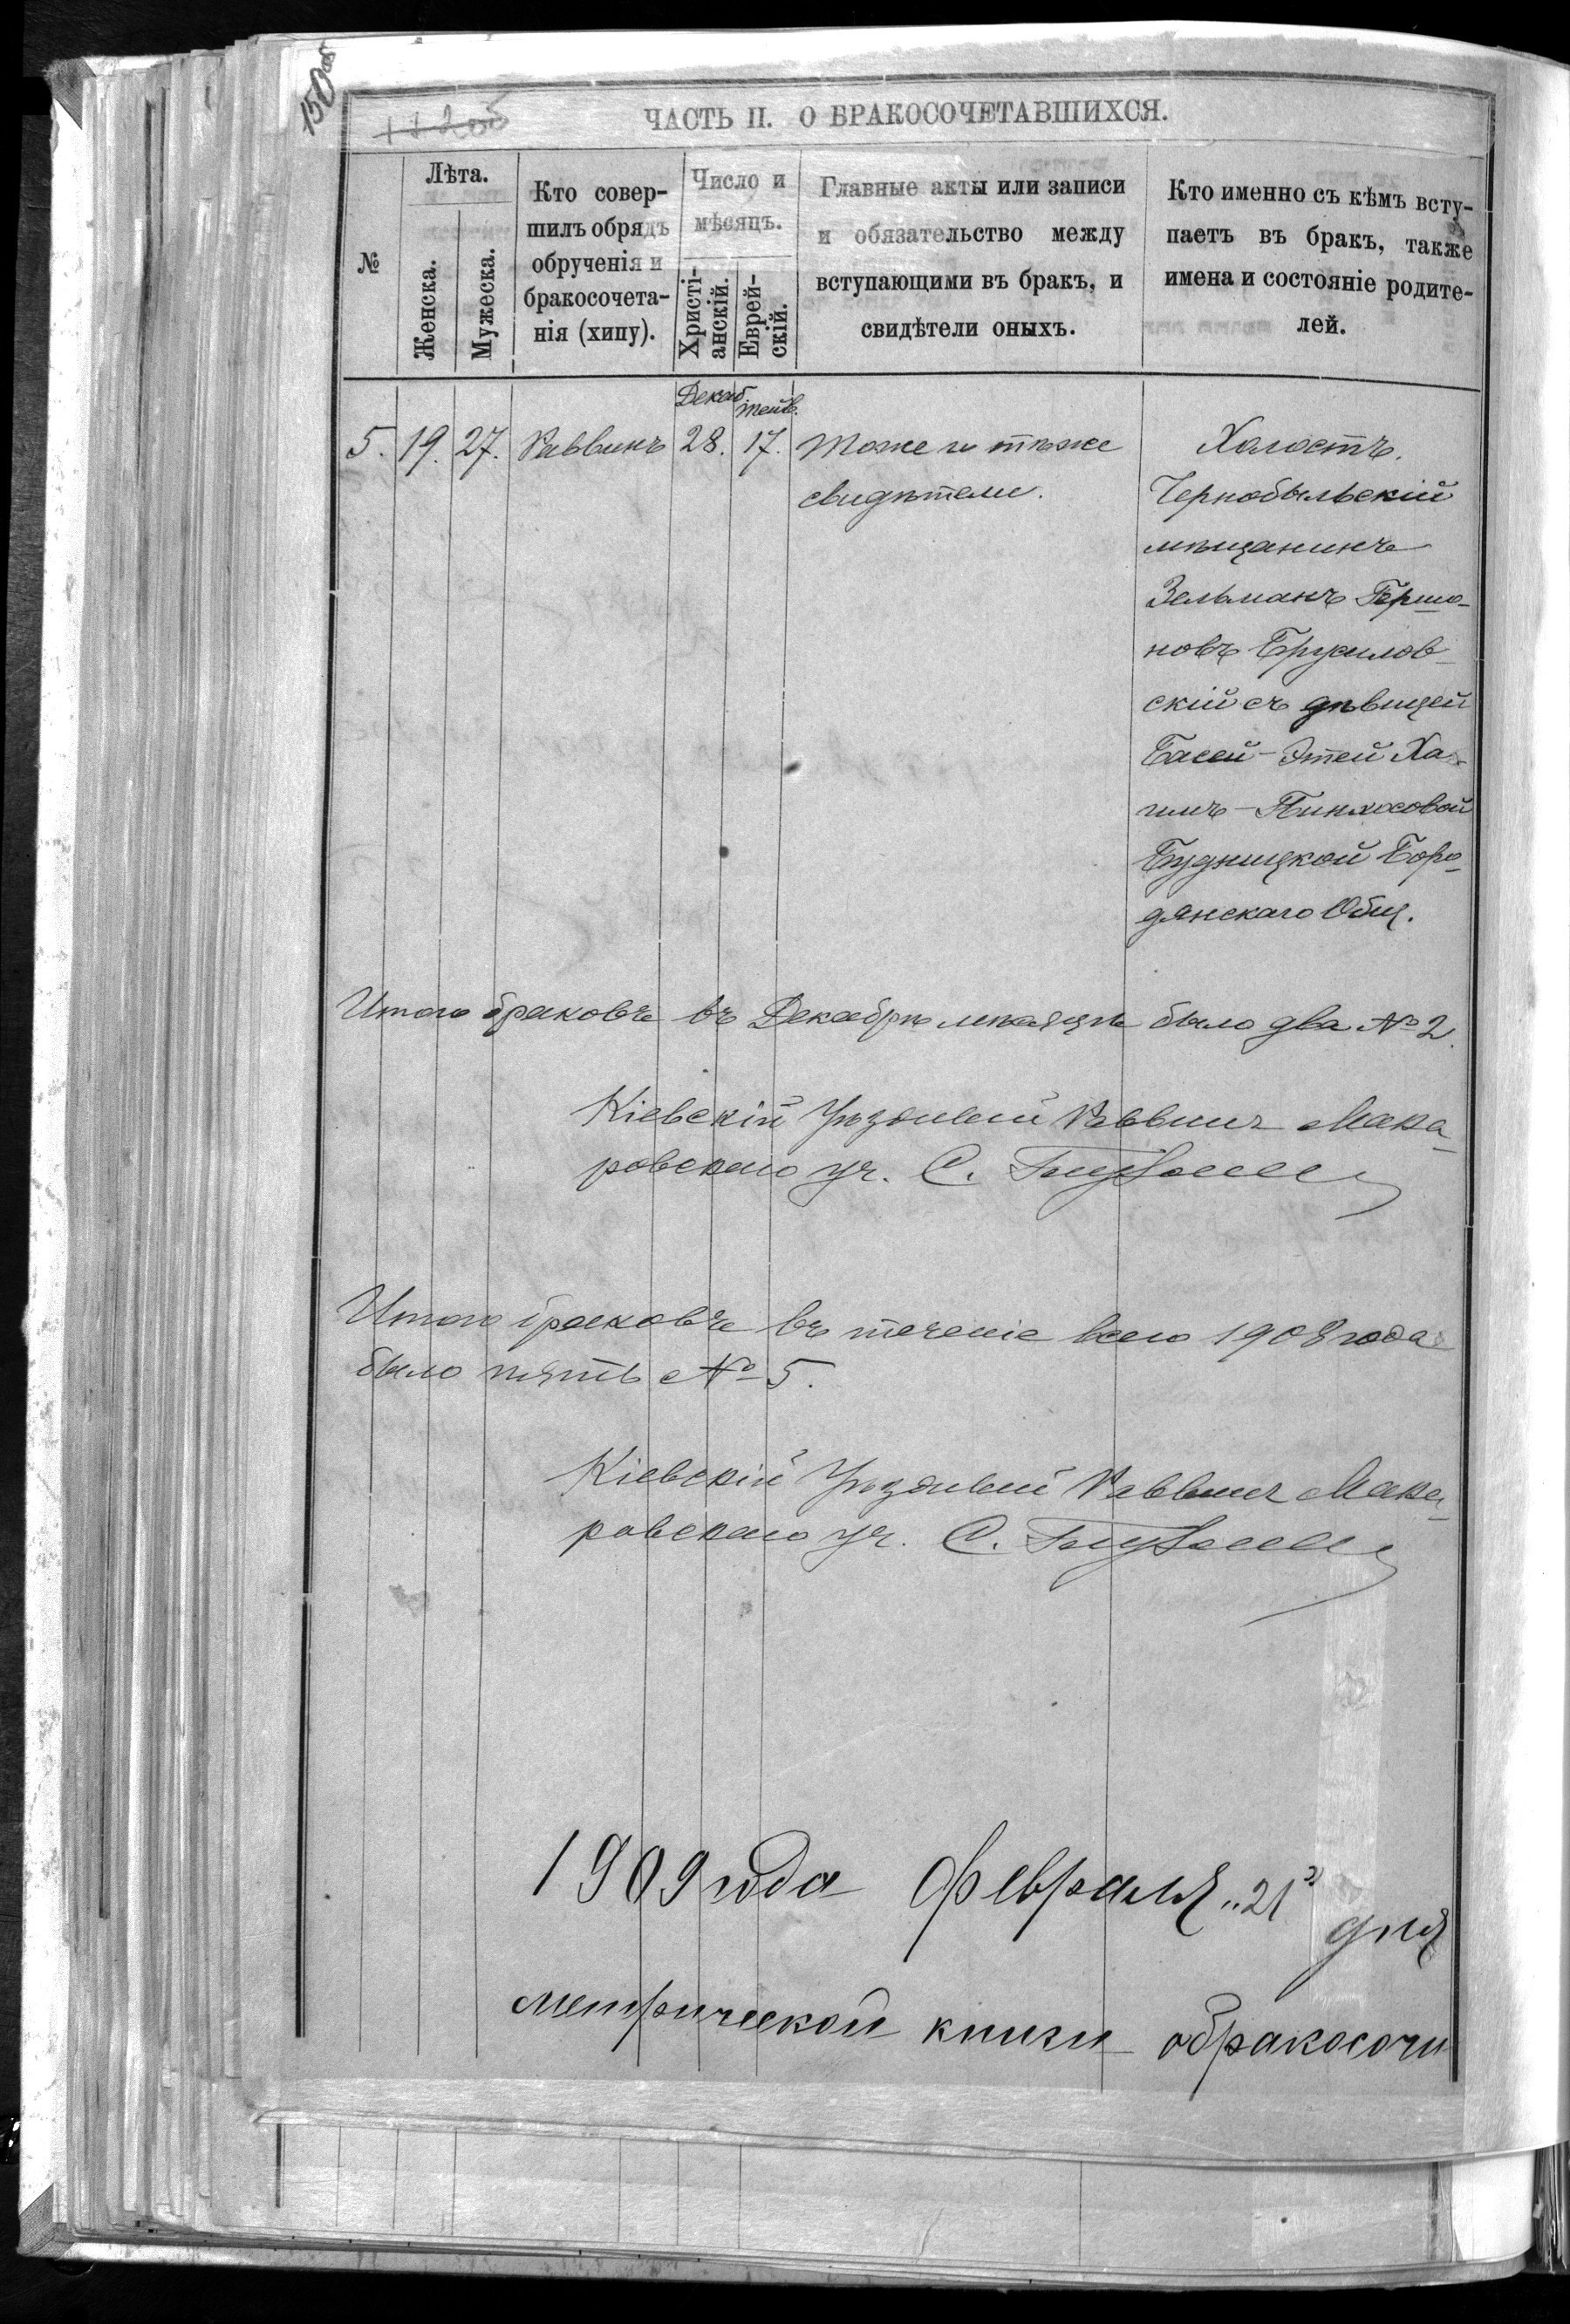 150об
ЧАСТЬ II. О БРАКОСОЧЕТАВШИХСЯ.
№
Лѣта.
Женска.
Мужеска.
Кто совер-
шилъ обрядъ
обрученія и
бракосочета-
нія (хипу).
Число и
мѣсяцъ.
Христі-
анскій.
Еврей-
скій.
Главные акты или записи
и обязательство между
вступающими въ бракъ, и
свидѣтели оныхъ.
Кто именно съ кѣмъ всту-
паетъ въ бракъ, также
имена и состояніе родите-
лей.
Декаб. тейв.
5. 19. 27. Раввинъ 28. 17. Тоже и тѣже
свидѣтели.
Холостъ.
Чернобыльскій
мѣщанинъ
Зельманъ Гершо-
новъ Бруслов-
скій съ дѣвицей
Басей-Этей Ха-
имъ-Пинхосовой
Будницкой Боро-
дянскаго Общ.
Итого браковъ въ Декабрѣ мѣсяцѣ было два № 2.
Кіевскій Уѣздный Раввинъ Мака-
ровскаго уч. С.
Итого браковъ въ теченіе всего 1908 года
было пять № 5.
Кіевскій Уѣздный Раввинъ Мака-
ровскаго уч. С.
1909 года февраля „21" дня
метрической книги о бракосочи